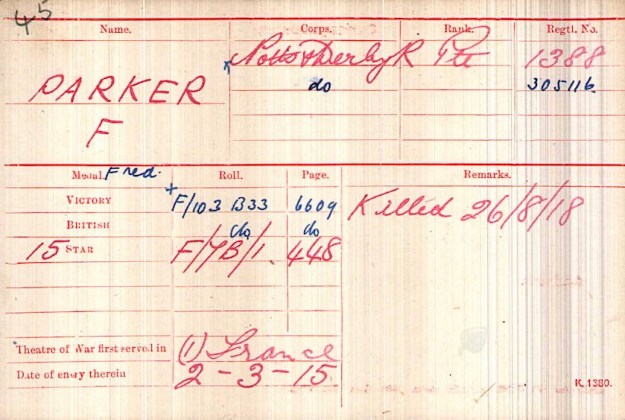 45
Name. Corps. Rank. Regtl. No.
x Notts & Derby R Pte 1388
PARKER do 305116
F
Medal. Fred. Roll. Page. Remarks.
VICTORY + F/103 B33 6609 Killed 26/8/18
BRITISH do do
15 STAR F/7B/1. 448
Theatre of War first served in (1) France
Date of entry therein 2-3-15.
K. 1380.